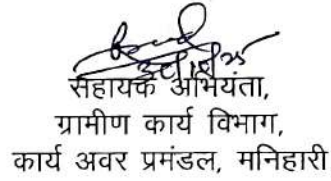 सहायक अभियंता,
ग्रामीण कार्य विभाग,
कार्य अवर प्रमंडल, मनिहारी